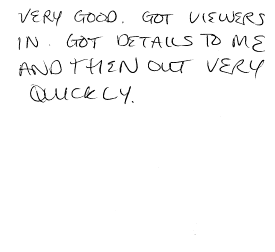 VERY GOOD. GOT VIEWERS
IN. GOT DETAILS TO ME
AND THEN OUT VERY
QUICKLY.